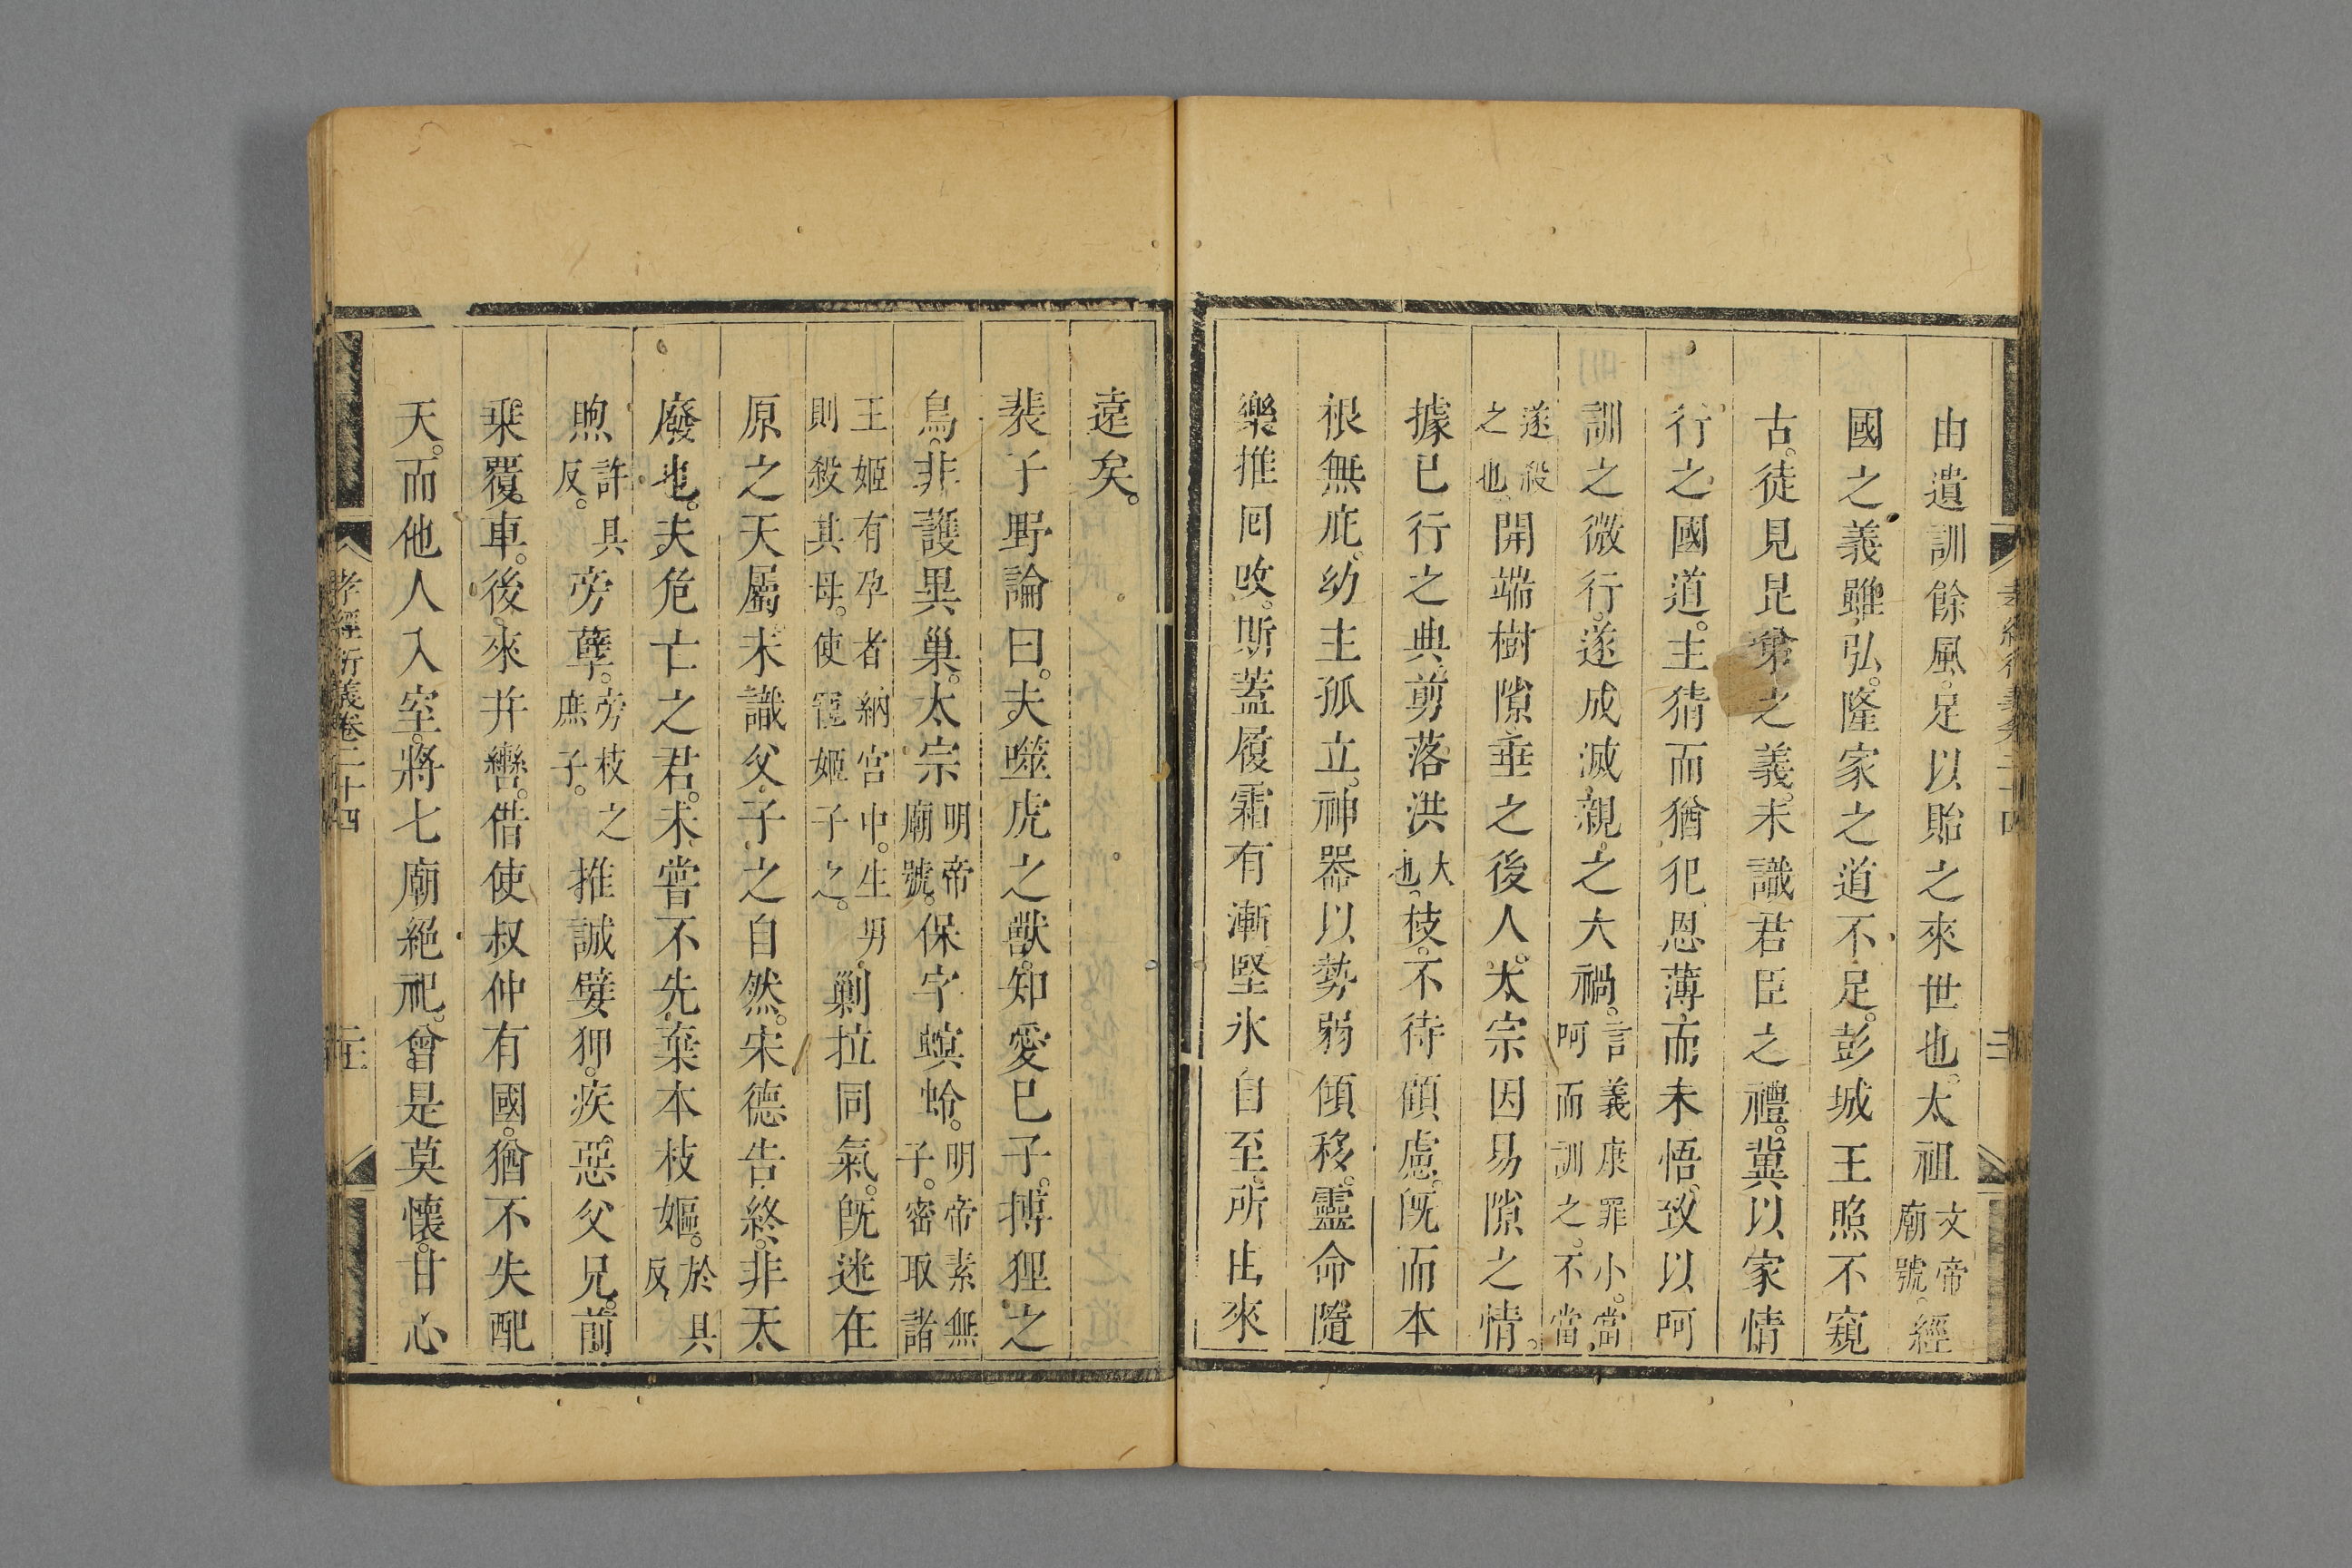 由遺訓餘風。足以貽之來世也。太祖文帝廟號。經
國之義雖弘。隆家之道不足。彭城王照不窺
古。徒見昆弟之義。未識君臣之禮。冀以家情
行之國道。主猜而猶犯。恩薄而未悟。致以呵
訓之微行。遂成滅親之大禍。言義康罪小。當呵而訓之。不當
遂殺之也。開端樹隙。垂之後人。太宗因易隙之情。
據已行之典。剪落洪大也。枝。不待顧慮。旣而本
根無庇。幼主孤立。神器以勢弱傾移。靈命隨
樂推囘攺。斯蓋履霜有漸。堅氷自至。所由來
遠矣。
裴子野論曰。夫噬虎之獸。知愛已子。搏狸之
鳥。非護異巢。太宗明帝廟號。保字螟蛉。明帝素無子。密取諸
王姬有孕者納宮中。生男則殺其母。使寵姬子之。剿拉同氣。旣迷在
原之天屬。未識父子之自然。宋德告終。非天
廢也。夫危亡之君。未嘗不先棄本枝。嫗於具反
煦許具反。旁孽。旁枝之庶子。推誠嬖狎。疾惡父兄。前
乗覆車。後來并轡。借使叔仲有國。猶不失配
天。而他人入室。將七廟絕祀。曾是莫懷。甘心
孝經衍義卷二十四